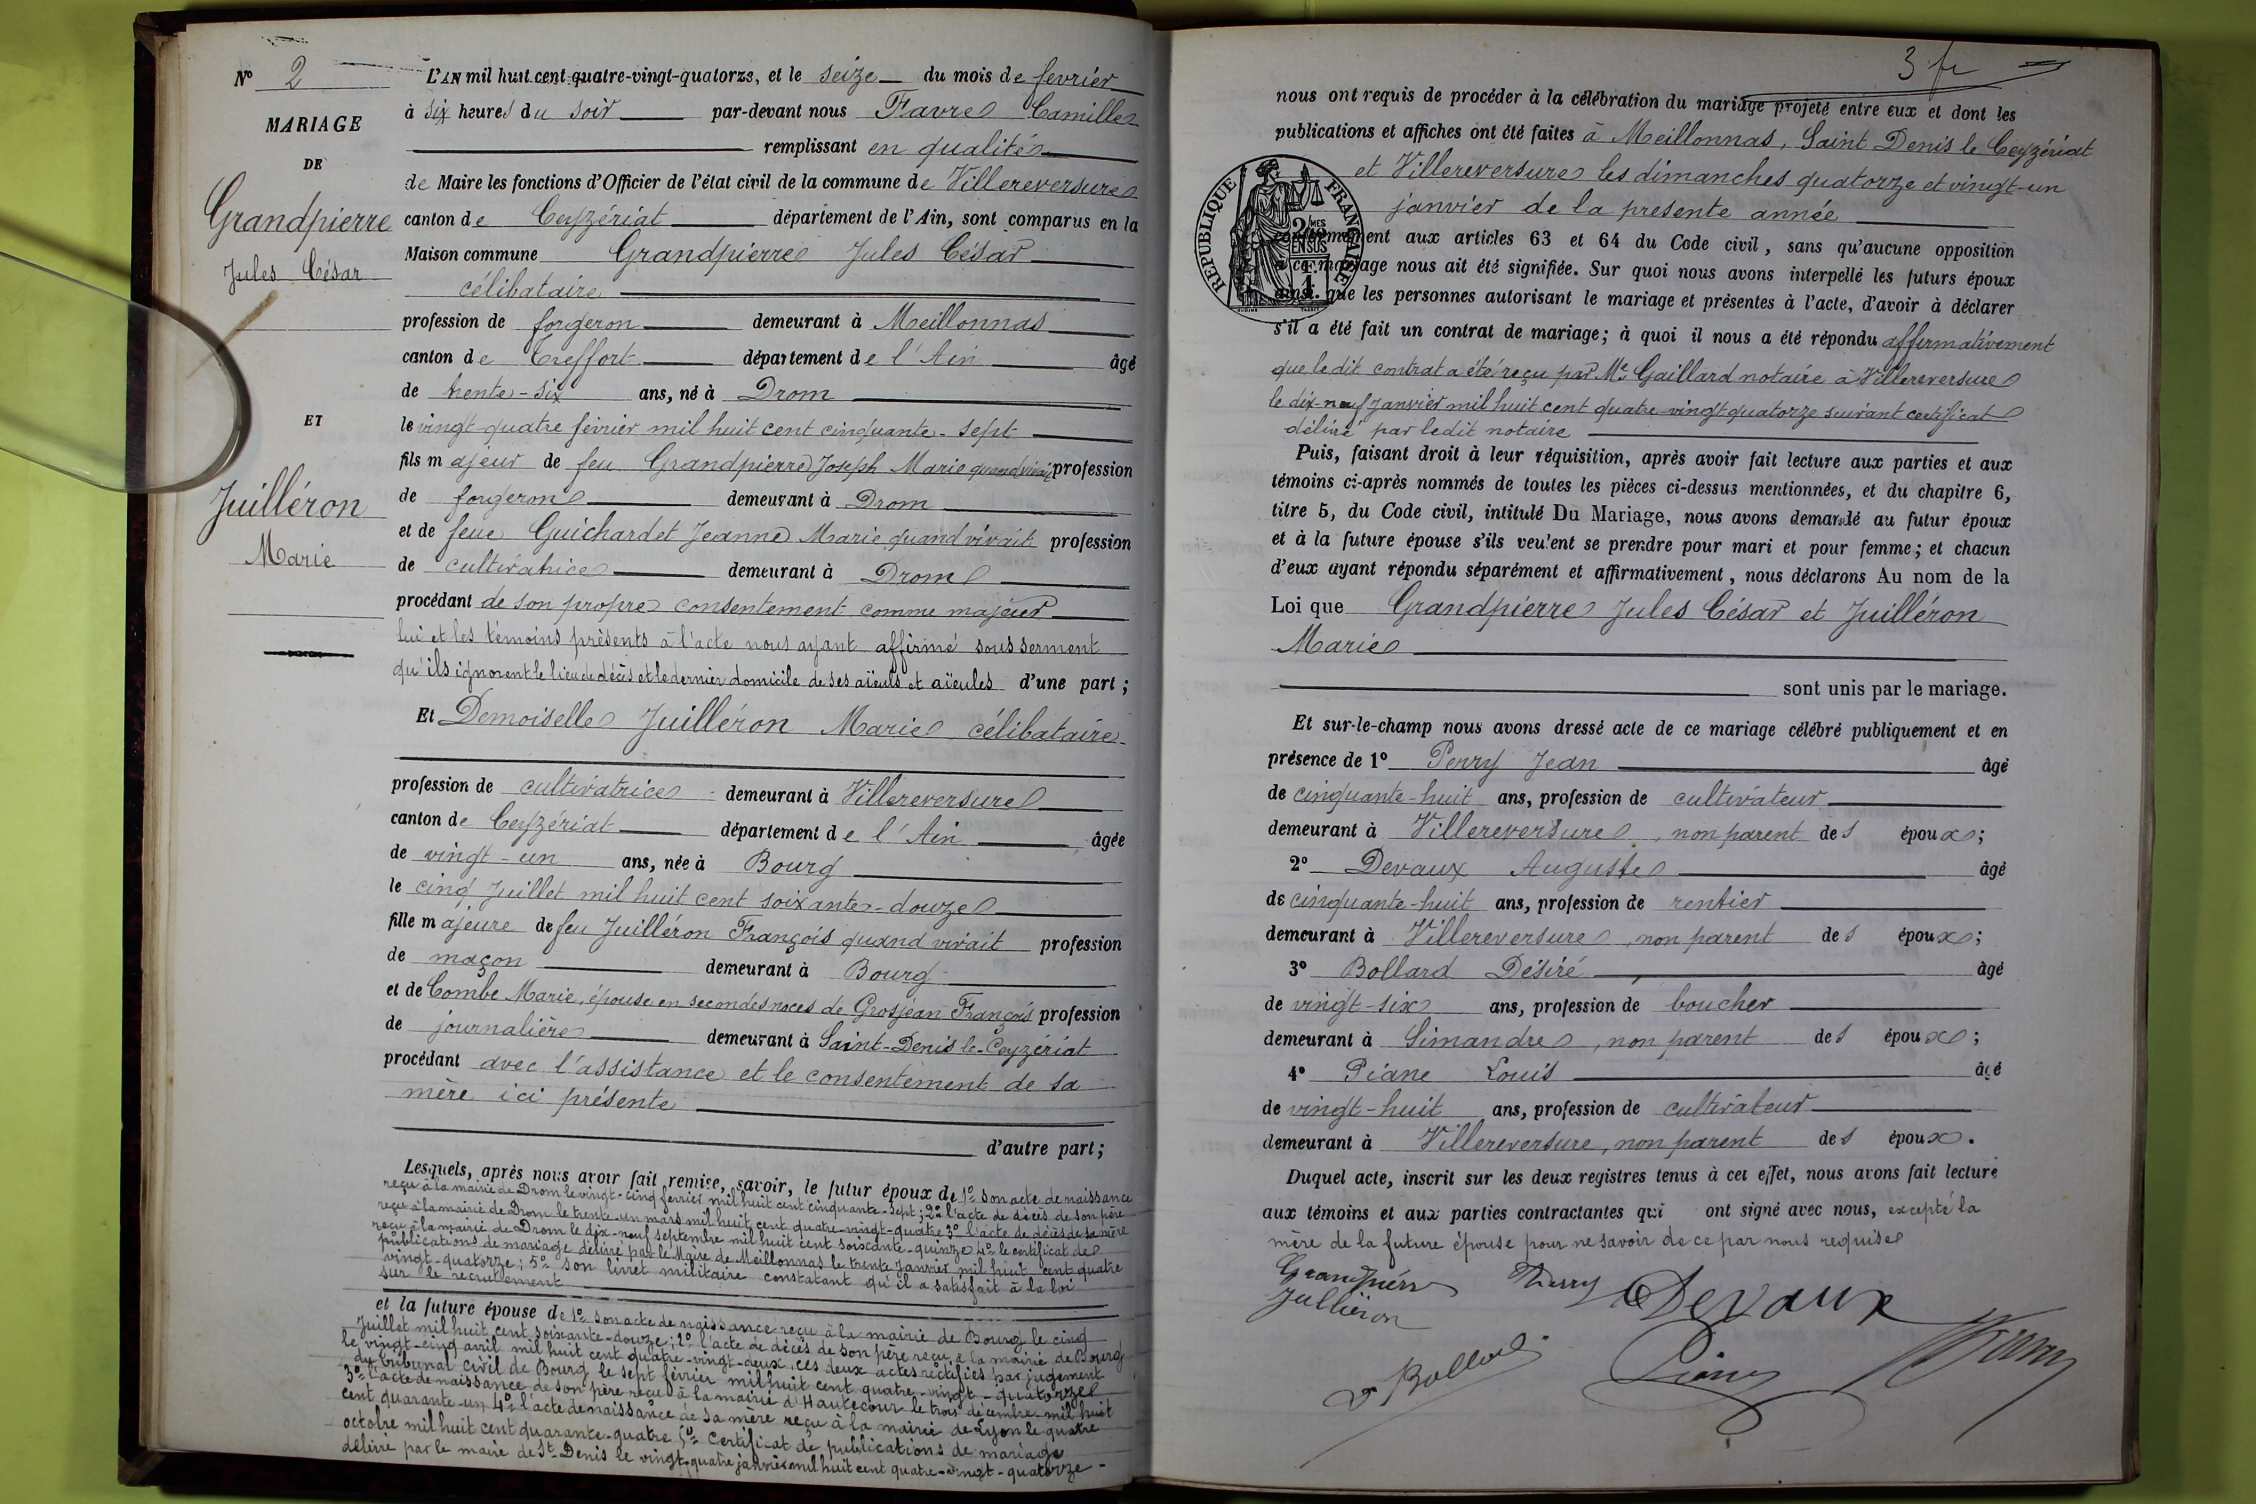 N° 2
MARIAGE
DE
Grandpierre
Jules César
ET
Juilléron
Marie
L'AN mil huit cent quatre-vingt-quatorze, et le seize du mois de fevrier
à six heures du soir par-devant nous Favre Camille
remplissant en qualité
de Maire les fonctions d'Officier de l'état civil de la commune de Villereversure
canton de Ceyzériat département de l'Ain, sont comparus en la
Maison commune Grandpierre Jules César
célibataire
profession de forgeron demeurant à Meillonnas
canton de Treffort département de l'Ain âgé
de trente-six ans, né à Drom
le vingt-quatre février mil huit cent cinquante-sept
fils majeur de feu Grandpierre Joseph Marie quand vivait profession
de forgeron demeurant à Drom
et de feue Guichardet Jeanne Marie quand vivait profession
de cultivatrice demeurant à Drom
procédant de son propre consentement comme majeur
lui et les témoins présents à l'acte nous ayant affirmé sous serment
qu'ils ignorent le lieu de décès et le dernier domicile de ses aïeuls et aïeules d'une part;
Et Demoiselle Juilléron Marie célibataire
profession de cultivatrice demeurant à Villereversure
canton de Ceyzériat département de l'Ain âgée
de vingt-un ans, née à Bourg
le cinq Juillet mil huit cent soixante-douze
fille majeure de feu Juilléron François quand vivait profession
de maçon demeurant à Bourg
et de Combe Marie, épouse en secondes noces de Grosjean François profession
de journalière demeurant à Saint-Denis-le-Ceyzériat
procédant avec l'assistance et le consentement de sa
mère ici présente
d'autre part;
Lesquels, après nous avoir fait remise, savoir, le futur époux de 1° son acte de naissance
reçu à la mairie de Drom le vingt-cinq février mil huit cent cinquante-sept; 2° l'acte de décès de son père
reçu à la mairie de Drom le trente-un mars mil huit cent quatre-vingt-quatre 3° l'acte de décès de sa mère
reçu à la mairie de Drom le dix-neuf septembre mil huit cent soixante-quinze 4° le certificat de
publications de mariage délivré par le Maire de Meillonnas le trente Janvier mil huit cent quatre
vingt-quatorze; 5° son livret militaire constatant qu'il a satisfait à la loi
sur le recrutement
et la future épouse de 1° son acte de naissance reçu à la mairie de Bourg le cinq
Juillet mil huit cent soixante-douze; 2° l'acte de décès de son père reçu à la mairie de Bourg
le vingt-cinq avril mil huit cent quatre-vingt-deux, ces deux actes rectifiés par jugement
du tribunal civil de Bourg le sept février mil huit cent quatre-vingt-quatorze
3° l'acte de naissance de son père reçu à la mairie d'Hautecour le trois décembre mil huit
cent quarante-un 4° l'acte de naissance de sa mère reçu à la mairie de Lyon le quatre
octobre mil huit cent quarante-quatre 5° certificat de publications de mariage
délivré par le maire de St-Denis le vingt-quatre janvier mil huit cent quatre-vingt-quatorze
3 fr
nous ont requis de procéder à la célébration du mariage projeté entre eux et dont les
publications et affiches ont été faites à Meillonnas, Saint Denis le Ceyzériat
et Villereversure les dimanches quatorze et vingt-un
janvier de la presente année
REPUBLIQUE FRANÇAISE
2/MES EN SUS
1 F.
conformément aux articles 63 et 64 du Code civil, sans qu'aucune opposition
à ce mariage nous ait été signifiée. Sur quoi nous avons interpellé les futurs époux
ainsi que les personnes autorisant le mariage et présentes à l'acte, d'avoir à déclarer
s'il a été fait un contrat de mariage; à quoi il nous a été répondu affirmativement
que le dit contrat a été reçu par Me Gaillard notaire à Villereversure
le dix-neuf Janvier mil huit cent quatre-vingt quatorze suivant certificat
délivré par le dit notaire
Puis, faisant droit à leur réquisition, après avoir fait lecture aux parties et aux
témoins ci-après nommés de toutes les pièces ci-dessus mentionnées, et du chapitre 6,
titre 5, du Code civil, intitulé Du Mariage, nous avons demandé au futur époux
et à la future épouse s'ils veulent se prendre pour mari et pour femme; et chacun
d'eux ayant répondu séparément et affirmativement, nous déclarons Au nom de la
Loi que Grandpierre Jules César et Juilléron
Marie
sont unis par le mariage.
Et sur-le-champ nous avons dressé acte de ce mariage célébré publiquement et en
présence de 1° Perry Jean âgé
de cinquante-huit ans, profession de cultivateur
demeurant à Villereversure, non parent des époux;
2° Devaux Auguste âgé
de cinquante-huit ans, profession de rentier
demeurant à Villereversure, non parent des époux;
3° Bollard Désiré âgé
de vingt-six ans, profession de boucher
demeurant à Simandre, non parent des époux;
4° Piane Louis âgé
de vingt-huit ans, profession de cultivateur
demeurant à Villereversure, non parent des époux.
Duquel acte, inscrit sur les deux registres tenus à cet effet, nous avons fait lecture
aux témoins et aux parties contractantes qui ont signé avec nous, excepté la
mère de la future épouse pour ne savoir de ce par nous requise
Grandpierre Perry Devaux
Julliéron
D Bollard Piane